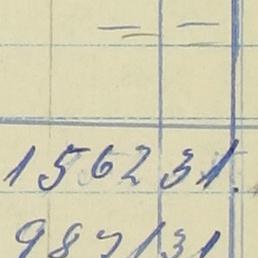 — —
156231.
987131